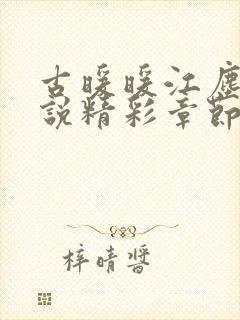 古暖暖江塵
說精彩章節
梓晴醬